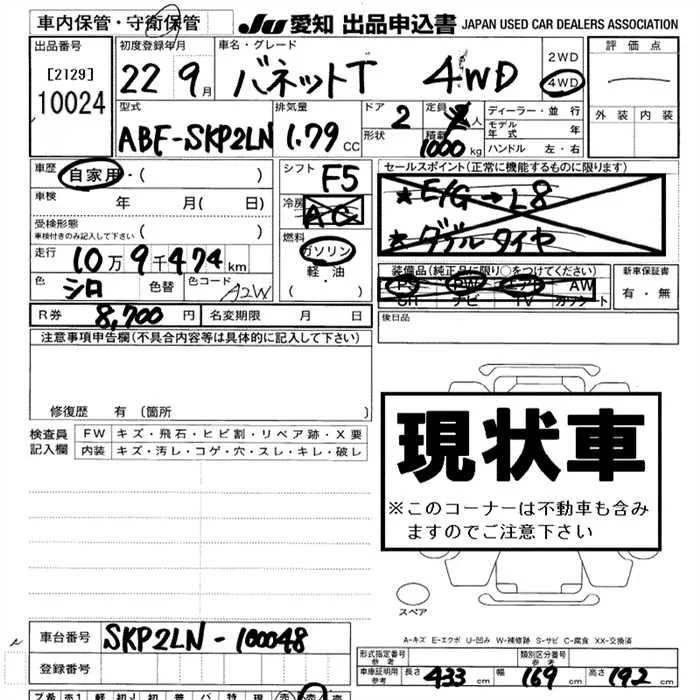 車内保管・守衛保管
JU 愛知 出品申込書 JAPAN USED CAR DEALERS ASSOCIATION
出品番号
[2129]
10024
初度登録年月
22 9月
車名・グレード
バネットT 4WD
2WD
4WD
評価点
外装 内装
型式
ABF-SKP2LN
排気量
1.79 CC
ドア 2
形状
定員 人
積載 1000 kg
ディーラー・並行
モデル年式 年
ハンドル 左・右
車歴 自家用・( )
車検 年 月( 日)
受検形態
車検付きのみ記入して下さい ( )
走行 10万9千474km
色 シロ 色替 色コード A2W
R券 8,700円 名変期限 月 日
シフト F5
冷房 AC
燃料
ガソリン
軽・油
( ・ )
セールスポイント(正常に機能するものに限ります)
★E/G→L8
★ダブルタイヤ
装備品(純正品に限り○をつけてください)
PS PW エアB AW
SR ナビ TV カワシート
新車保証書
有・無
後日品
注意事項申告欄(不具合内容等は具体的に記入して下さい)
修復歴 有 (箇所
検査員記入欄
FW キズ・飛石・ヒビ割・リペア跡・X要
内装 キズ・汚レ・コゲ・穴・スレ・キレ・破レ
現状車
※このコーナーは不動車も含み
ますのでご注意下さい
スペア
A-キズ E-エクボ U-凹み W-補修跡 S-サビ C-腐食 XX-交換済
車台番号 SKP2LN-100048
登録番号
形式指定番号 参考
類別区分番号 参考
車庫証明用 参考 長さ 433 cm 幅 169 cm 高さ 192 cm